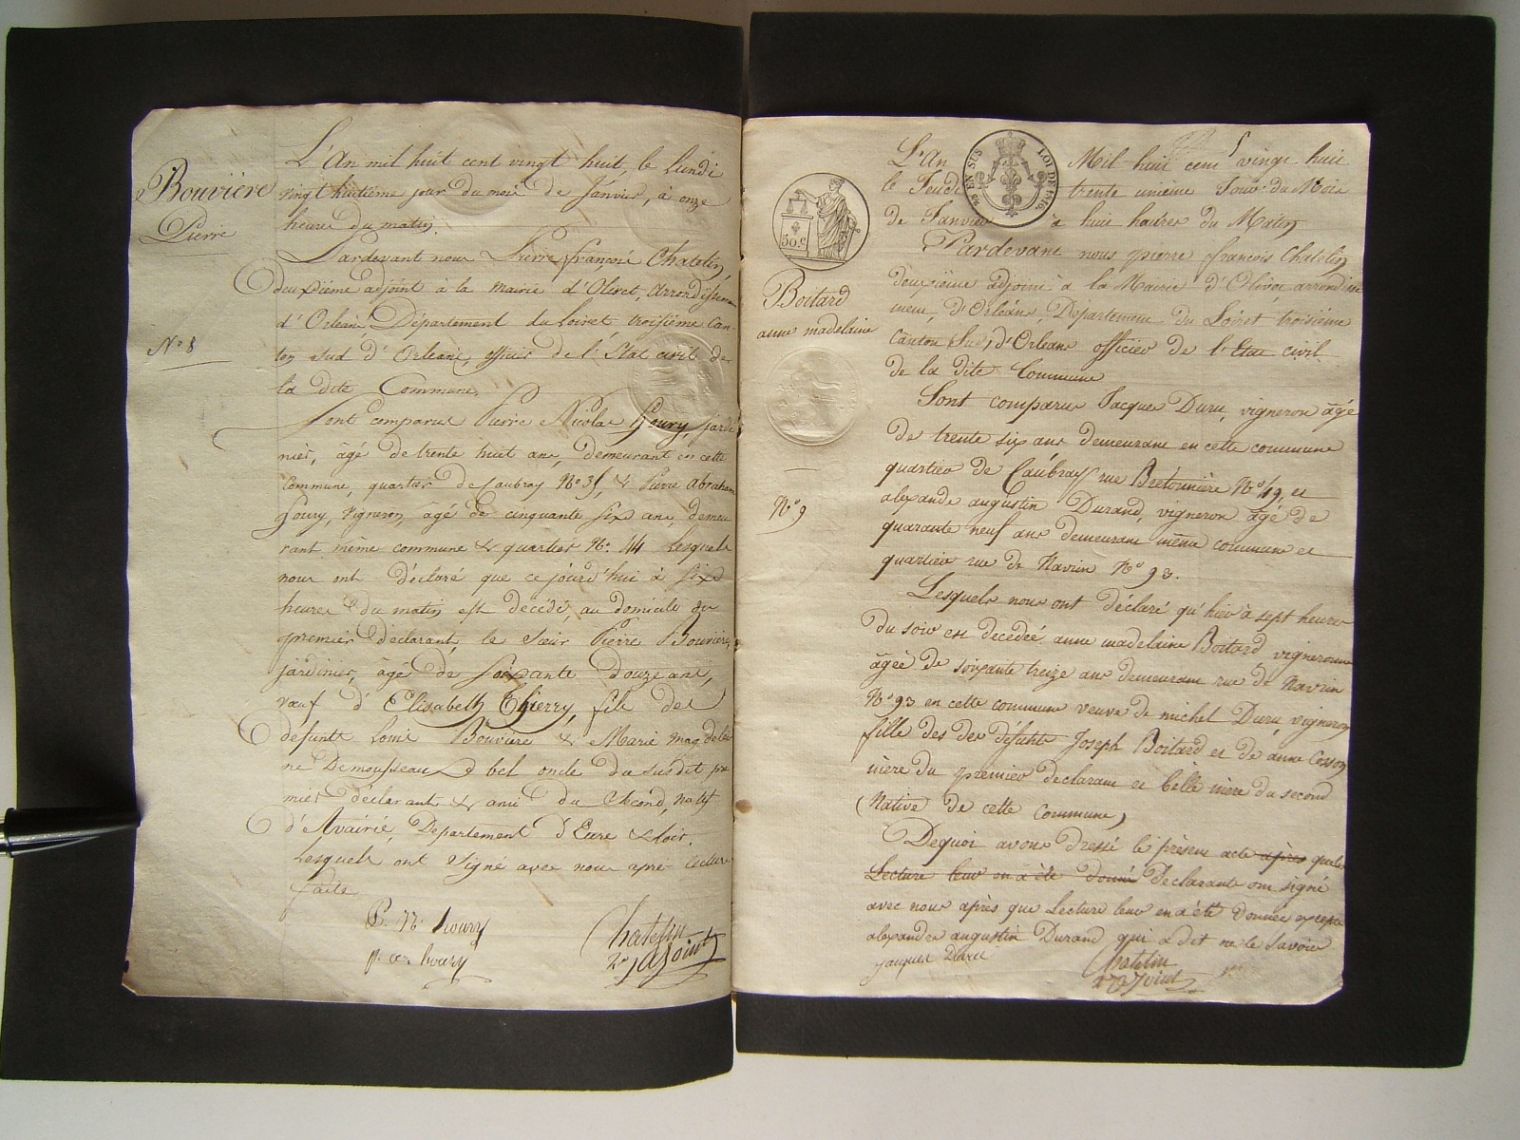 Bouvière
Pierre
N° 8
L'An mil huit cent vingt huit, le Lundi
vingt huitieme jour du mois de Janvier, à onze
heures du matin.
Pardevant nous Pierre françois Chatelin,
deuxième adjoint à la mairie d'Olivet, Arrondissement
d'Orleans Département du Loiret troisième Can-
ton sud d'Orleans, officier de l'Etat civil de
la dite Commune.
Sont comparus Pierre Nicolas Houry, jardi
nier, âgé de trente huit ans, demeurant en cette
commune, quartier de Caubray N° 35, & Pierre abraham
houry, vigneron, agé de cinquante six ans, demeu
rant même commune & quartier N°. 44 lesquels
nous ont déclaré que ce jourd'hui à six
heures du matin est décédé, au domicile du
premier déclarant, le sieur Pierre Bouvière,
jardinier, âgé de soixante douze ans,
veuf d'Elisabeth Thierry, fils des
defunts Louis Bouvière & Marie magdelei
ne Demousseau bel oncle du susdit pre
mier déclarant & ami du second, natif
d', Departement d'Eure & Loir.
Lesquels ont signé avec nous après lecture
faite
P. N. houry
p. a. houry
Chatelin
2e adjoint
EN SUS
LOI DE 1816.
50.c
Boitard
anne madelaine
N° 9
L'An Mil huit cent vingt huit
le Jeudi trente unième Jour du Mois
de Janvier à huit heures du Matin
Pardevant nous pierre francois Chatelin
deuxième adjoint à la Mairie d'Olivet arrondisse
ment d'Orléans, Département du Loiret troisième
Canton Sud, d'Orleans officier de l'Etat civil
de la dite Commune
Sont comparus Jacques Duru, vigneron âgé
de trente six ans demeurant en cette commune
quartier de Caubray rue Bretonnière N° 49, et
alexandre augustin Durand, vigneron âgé de
quarante neuf ans demeurant même commune et
quartier rue de Navrin N° 93.
Lesquels nous ont déclaré qu'hier à sept heures
du soir est decedée anne madelaine Boitard vigneronne
âgée de soixante treize ans demeurant rue de Navrin
N° 93 en cette commune veuve de michel Duru vigneron
fille des défunts Joseph Boitard et de anne Cesson
mère du premier declarant et belle mère du second
(Native de cette Commune)
Dequoi avons dressé le présent acte après que les
Lecture leur en a été donné Declarants ont signé
avec nous après que Lecture leur en a été donnée excepté
alexandre augustin Durand qui a dit ne le savoir
jacques Duru
Chatelin
2e adjoint